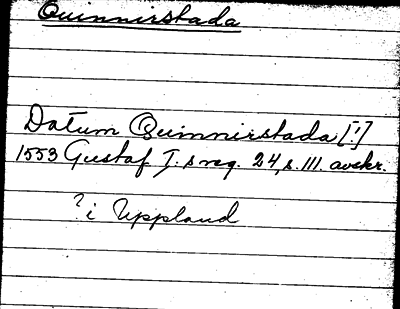 Quinnirstada
Datum Quinnirstada [!]
1553 Gustaf I. s reg. 24, s. 111. avskr.
? i Uppland